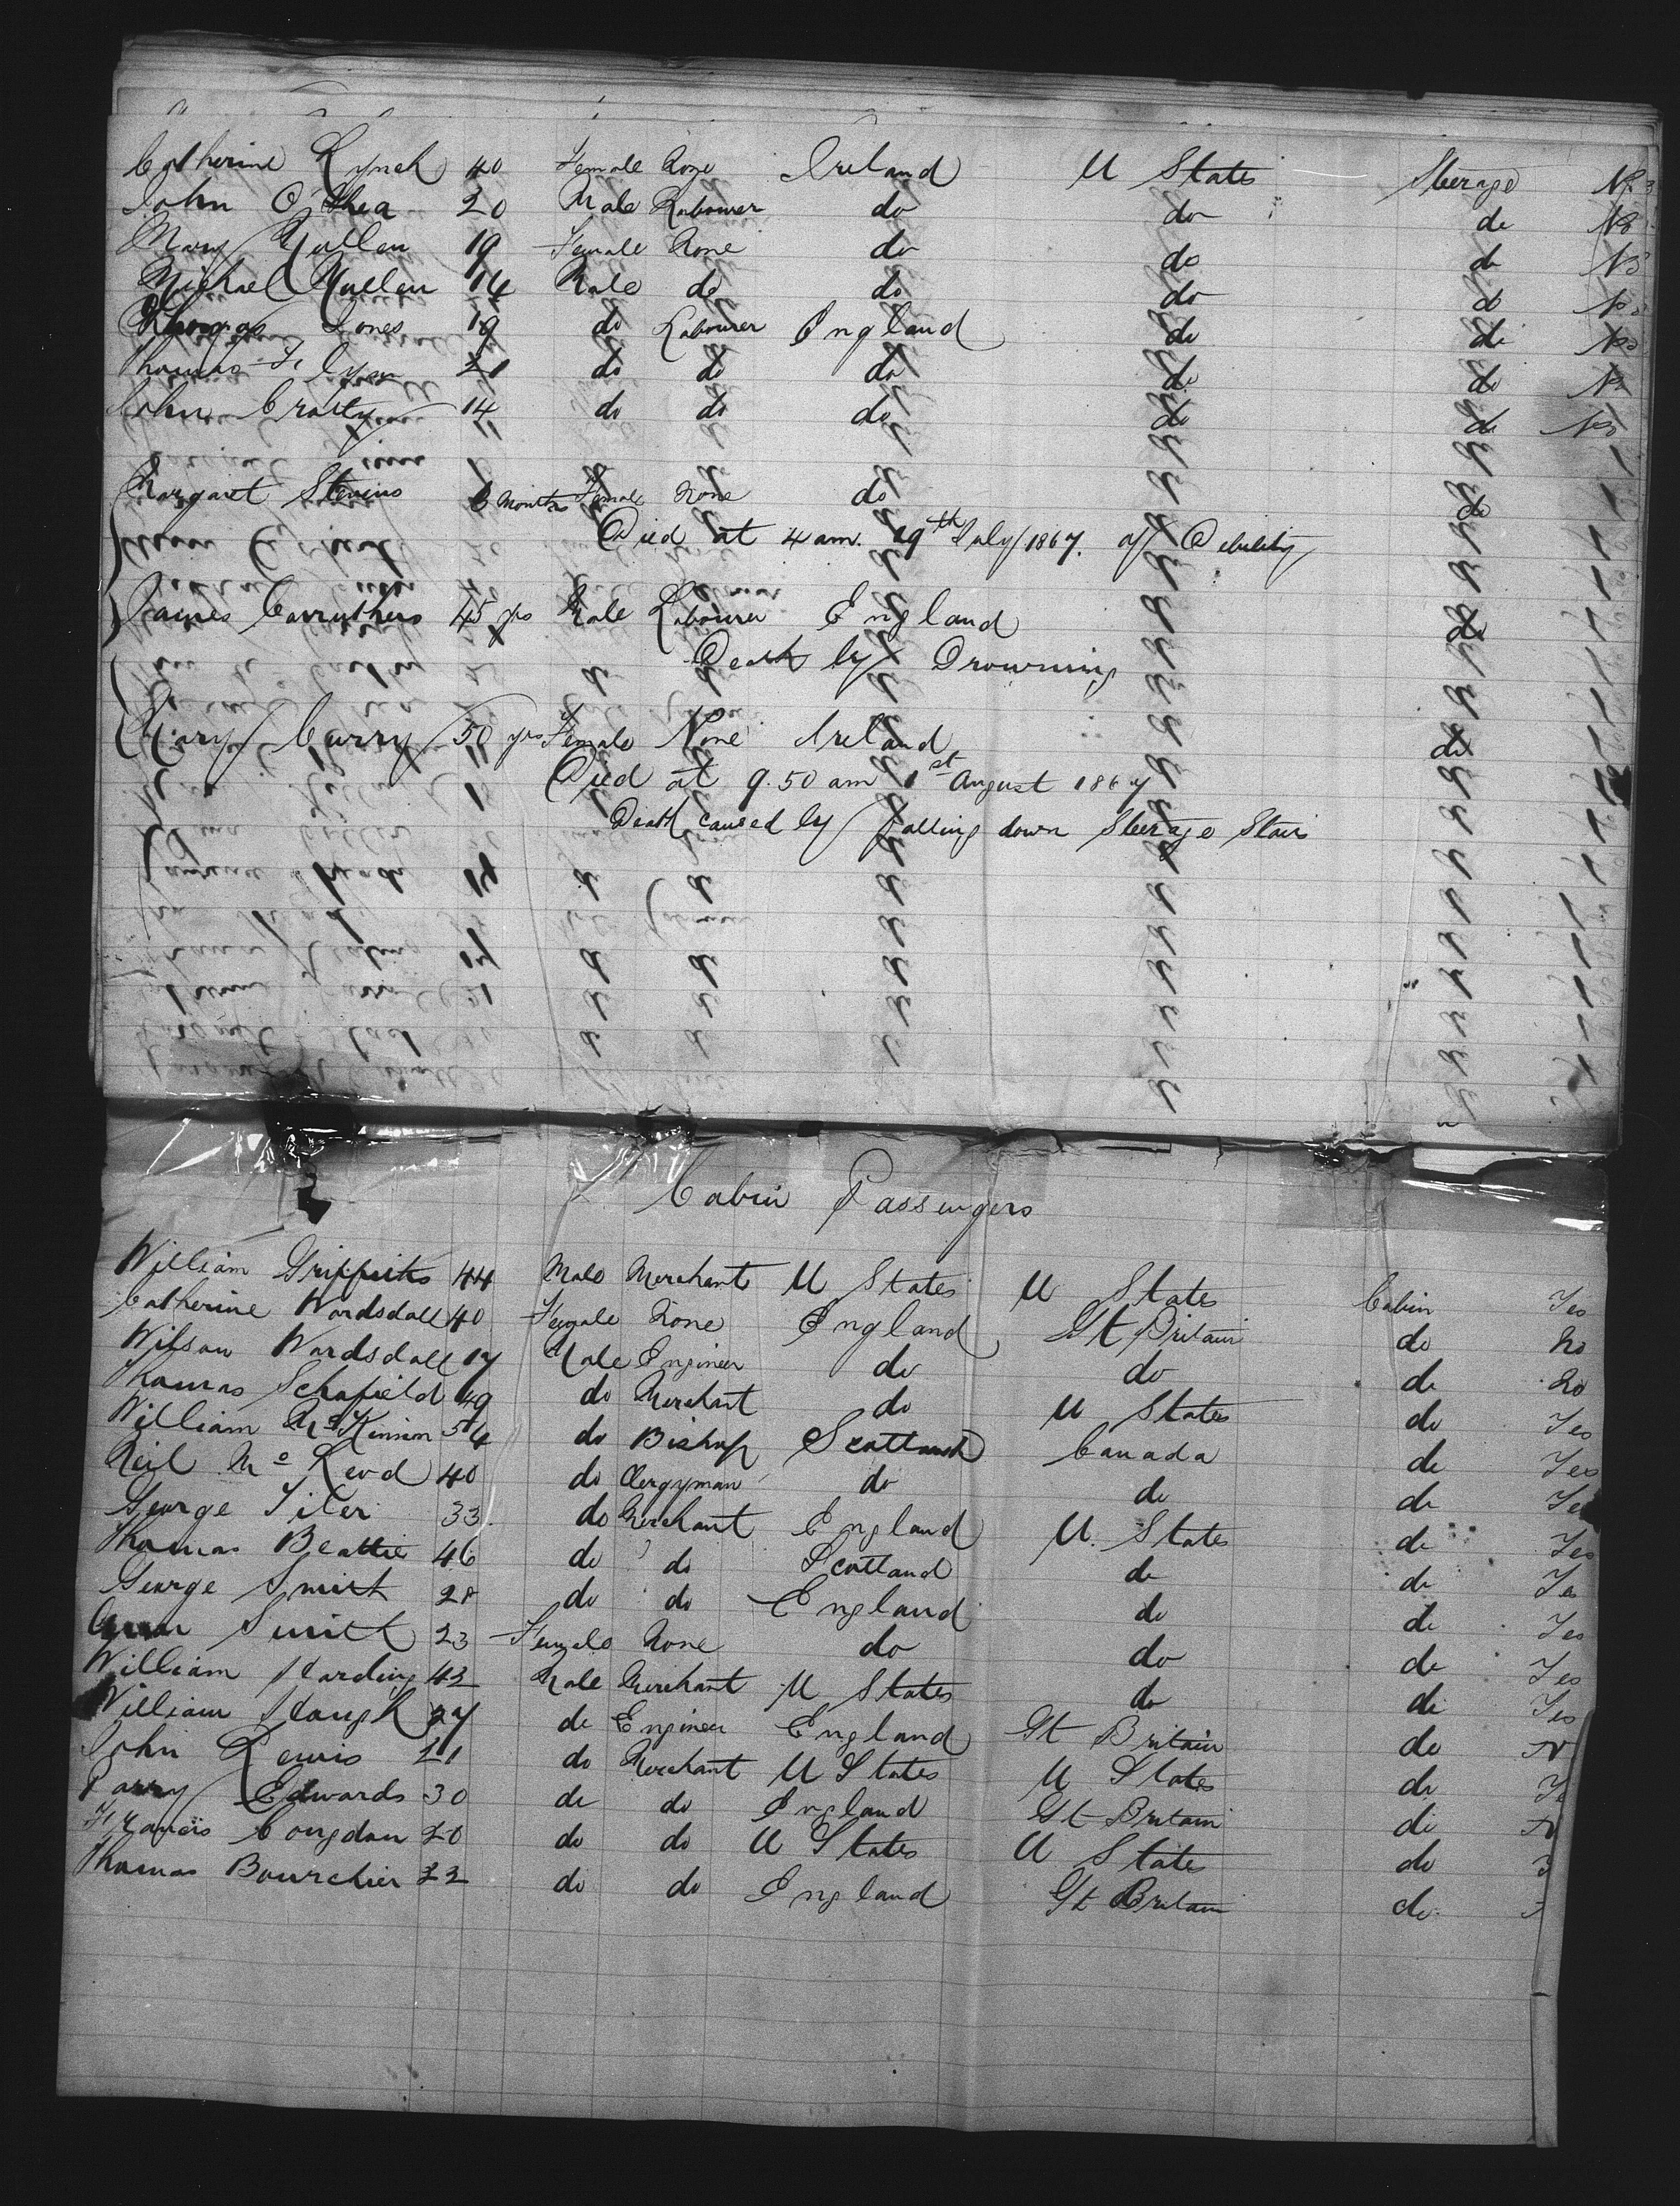 Catherine Lynch 40 Female None Ireland U States Steerage No
John O'Shea 20 Male Labourer do do do No
Mary Mullen 19 Female None do do do No
Michael Mullen 14 Male do do do do No
Thomas Jones 19 do Labourer England do do No
Thomas 21 do do do do do No
John Crotty 14 do do do do do No
Margaret Stevens 6 Months Female None do do
Died at 4 am. 29th July 1867. of Debility
James Carruthers 45 yrs Male Labourer England do
Death by Drowning
Mary Curry 50 yrs Female None Ireland do
Died at 9.50 am 1st August 1867
Death caused by falling down Steerage Stair
Cabin Passengers
William Griffiths 44 Male Merchant U States U States Cabin Yes
Catherine Wordsdall 40 Female None England Gt Britain do No
Wilson Wordsdall 17 Male Engineer do do do No
Thomas Schofield 49 do Merchant do U States do Yes
William McKinnon 54 do Bishop Scotland Canada do Yes
Neil Mc Leod 40 do Clergyman do do do Yes
George Tiler 33 do Merchant England U. States do Yes
Thomas Beattie 46 do do Scotland do do Yes
George Smith 28 do do England do do Yes
Ann Smith 23 Female None do do do Yes
William Harding 42 Male Merchant U States do do Yes
William Hough 27 do Engineer England Gt Britain do N
John Lewis 21 do Merchant U States U States do Y
Parry Edwards 30 do do England Gt Britain do N
Francis Congdon 20 do do U States U States do
Thomas Bourchier 22 do do England Gt Britain do